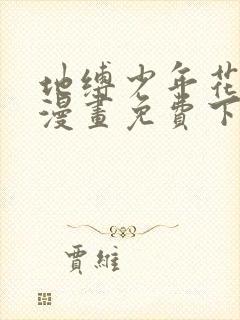 地缚少年花
漫畫免費下
賈維